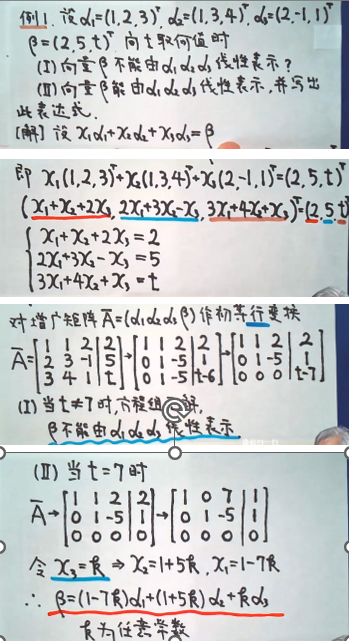 例1. 设α₁=(1,2,3)ᵀ, α₂=(1,3,4)ᵀ, α₃=(2,-1,1)ᵀ
β=(2,5,t)ᵀ 问t取何值时
(Ⅰ)向量β不能由α₁α₂α₃线性表示?
(Ⅱ)向量β能由α₁α₂α₃线性表示,并写出
此表达式.
[解] 设 x₁α₁+x₂α₂+x₃α₃=β
即 x₁(1,2,3)ᵀ+x₂(1,3,4)ᵀ+x₃(2,-1,1)ᵀ=(2,5,t)ᵀ
(x₁+x₂+2x₃, 2x₁+3x₂-x₃, 3x₁+4x₂+x₃)ᵀ=(2,5,t)ᵀ
x₁+x₂+2x₃=2
2x₁+3x₂-x₃=5
3x₁+4x₂+x₃=t
对增广矩阵Ā=(α₁α₂α₃β)作初等行变换
Ā=[1 1 2|2; 2 3 -1|5; 3 4 1|t]→[1 1 2|2; 0 1 -5|1; 0 1 -5|t-6]→[1 1 2|2; 0 1 -5|1; 0 0 0|t-7]
(Ⅰ)当t≠7时,方程组
β不能由α₁α₂α₃线性表示
(Ⅱ)当t=7时
Ā→[1 1 2|2; 0 1 -5|1; 0 0 0|0]→[1 0 7|1; 0 1 -5|1; 0 0 0|0]
令 x₃=k ⇒ x₂=1+5k, x₁=1-7k
∴ β=(1-7k)α₁+(1+5k)α₂+kα₃
k为任意常数